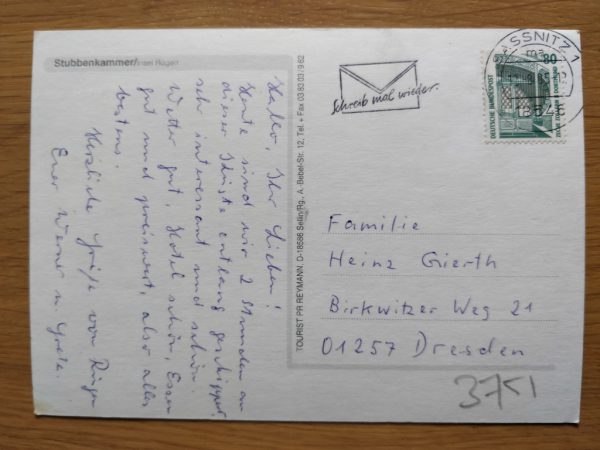 Stubbenkammer/Insel Rügen
Hallo, Ihr Lieben!
Heute sind wir 2 Stunden an
dieser Küste entlang geschippert,
sehr interessant und schön.
Wetter gut, Hotel schön, Essen
gut und preiswert, also alles
bestens.
Herzliche Grüße von Rügen
Euer Werner u. Greta.
TOURIST PR REYMANN, D-18586 Sellin/Rg., A.-Bebel-Str. 12, Tel. + Fax 03 83 03 / 9 62
Schreib mal wieder.
SSNITZ 1
80
DEUTSCHE BUNDESPOST
Familie
Heinz Gierth
Birkwitzer Weg 21
01257 Dresden
3751